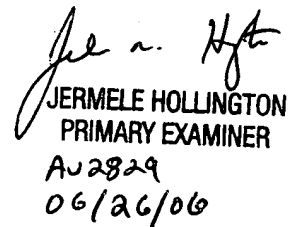 JERMELE HOLLINGTON
PRIMARY EXAMINER
AU2829
06/26/06